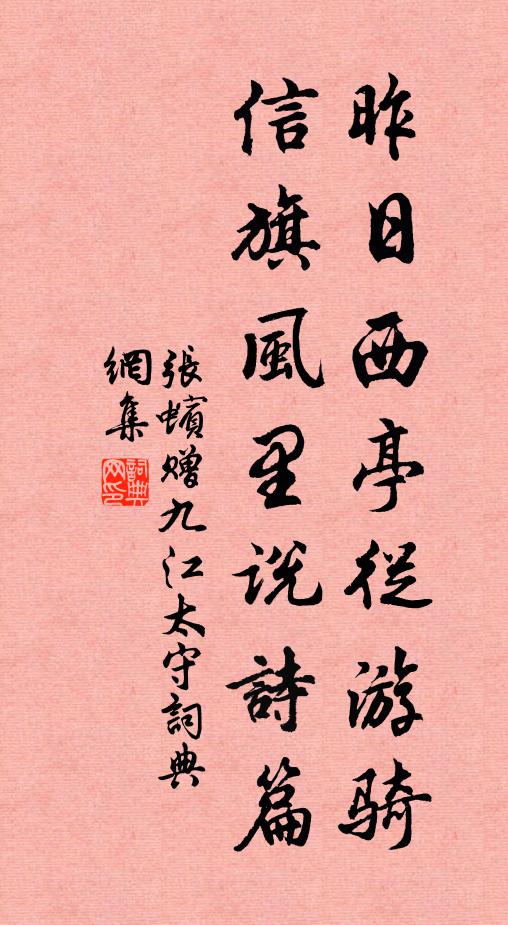 昨日西亭從游騎
信旗風里說詩篇
張蠙贈九江太守詞典
網集
詞典網印